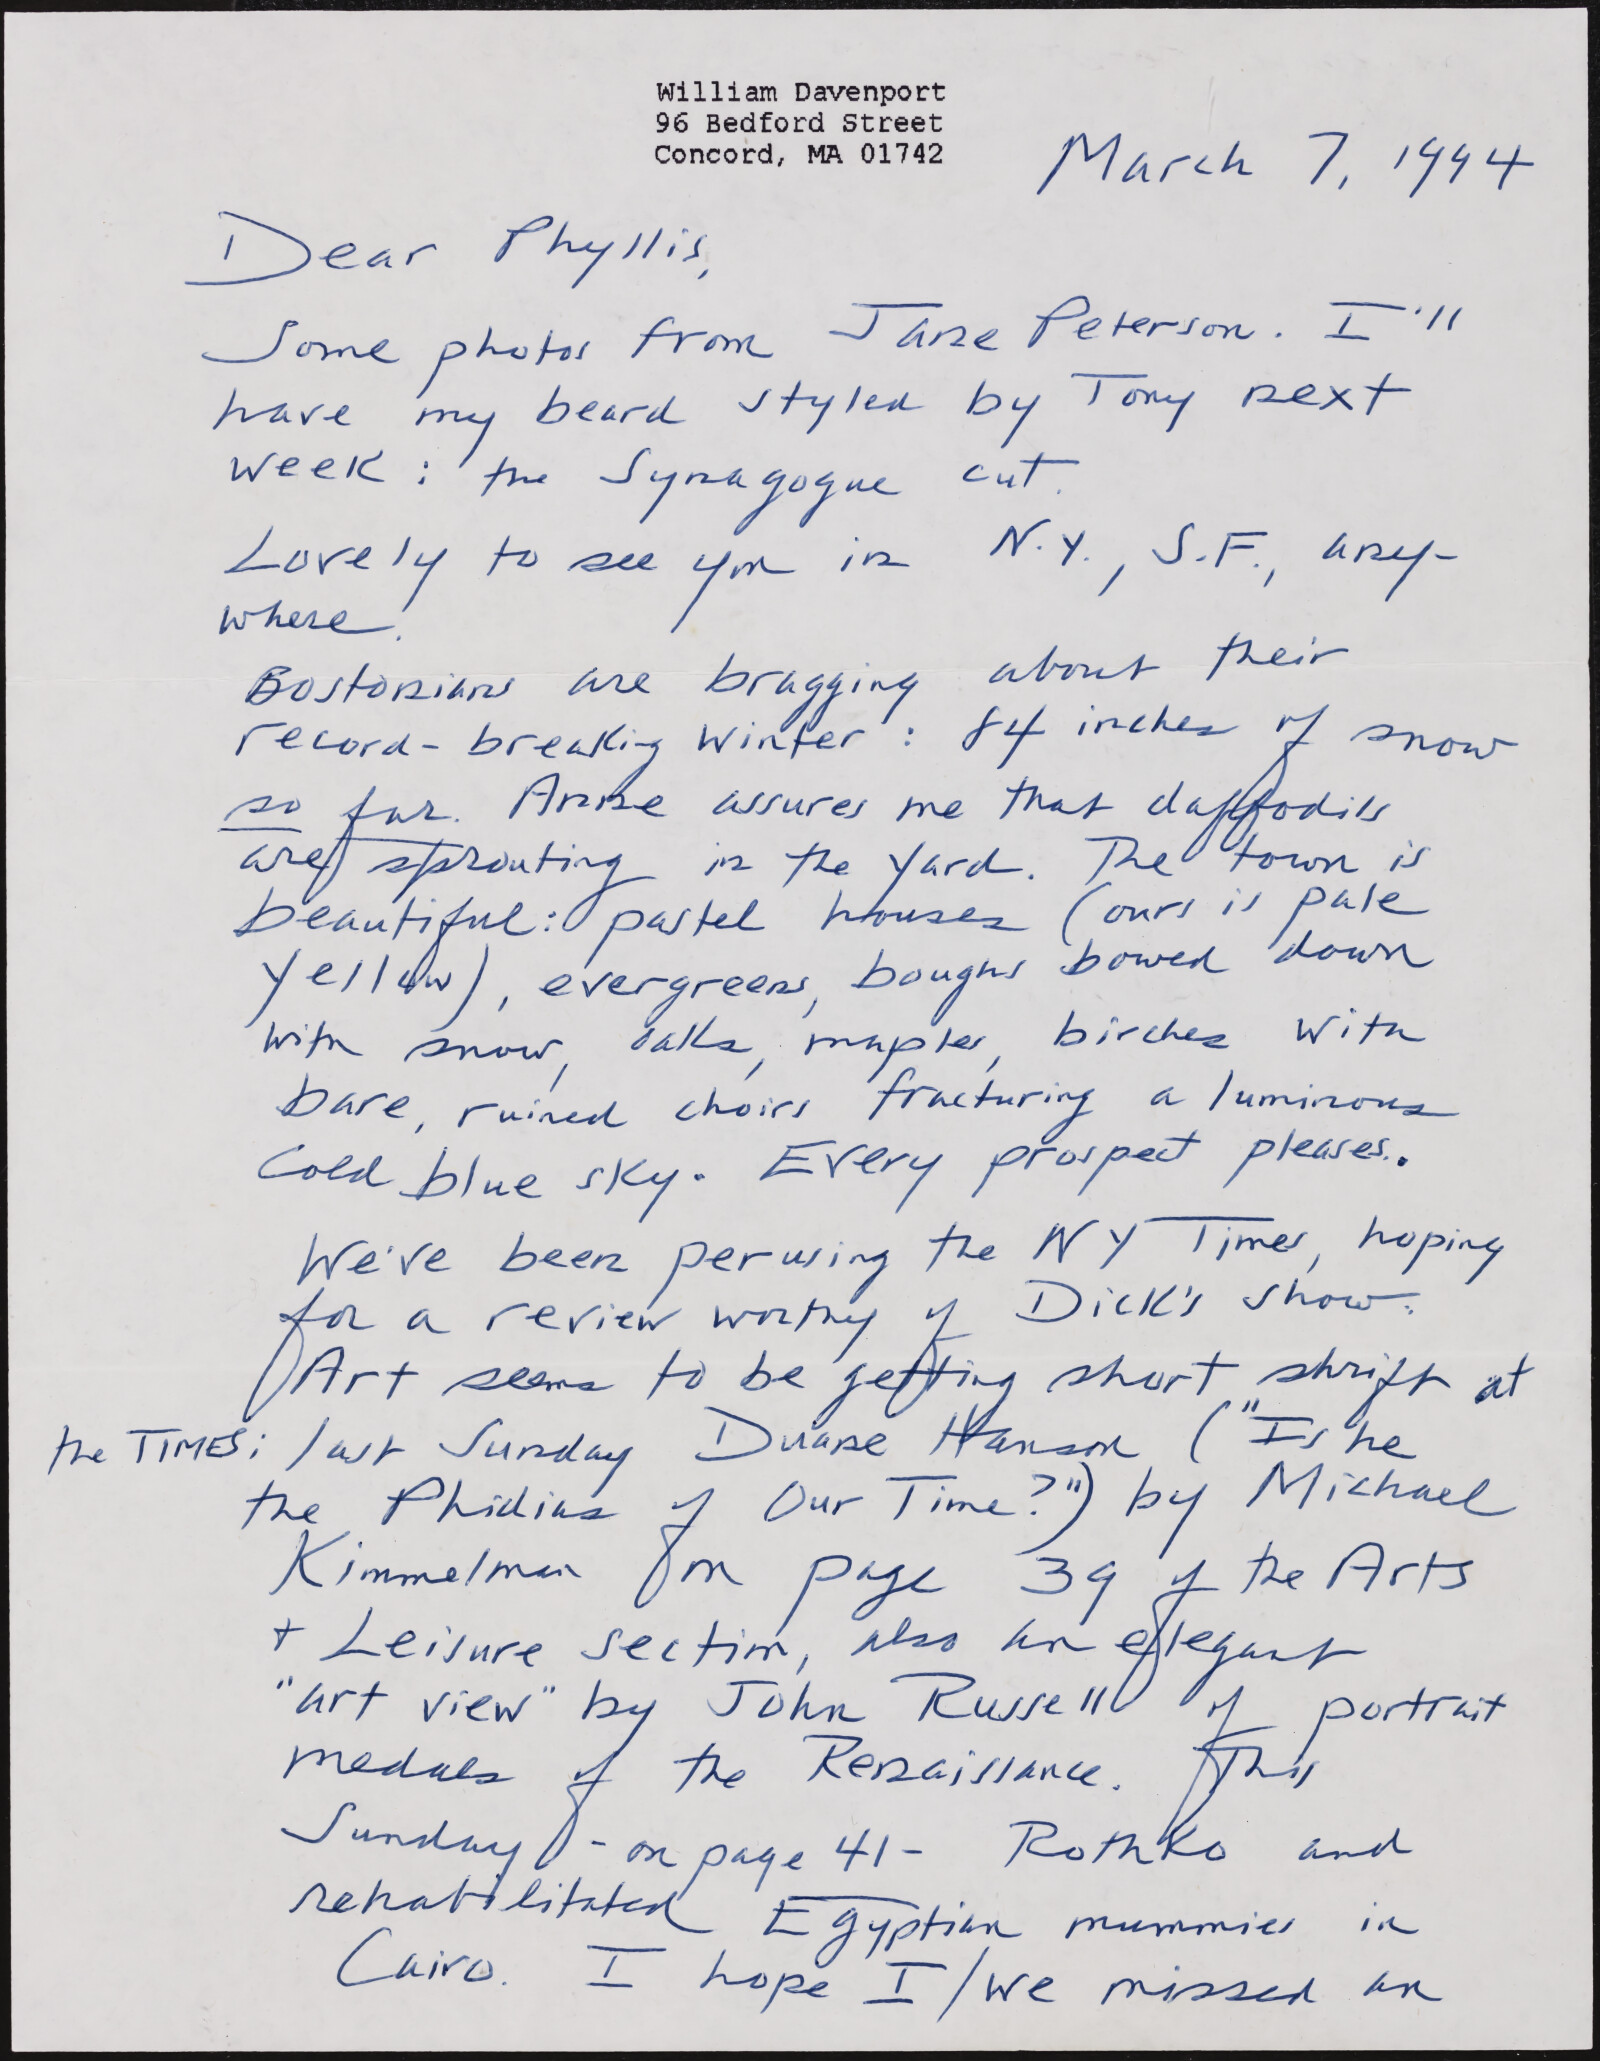 William Davenport
96 Bedford Street
Concord, MA 01742
March 7, 1994
Dear Phyllis,
Some photos from Jane Peterson. I'll
have my beard styled by Tony next
week: the Synagogue cut.
Lovely to see you in N.Y., S.F., any-
where.
Bostonians are bragging about their
record-breaking winter: 84 inches of snow
so far. Anne assures me that daffodils
are sprouting in the yard. The town is
beautiful: pastel houses (ours is pale
yellow), evergreens, boughs bowed down
with snow, oaks, maples, birches with
bare, ruined choirs fracturing a luminous
cold blue sky. Every prospect pleases.
We've been perusing the NY Times, hoping
for a review worthy of Dick's show.
Art seems to be getting short shrift at
the TIMES: last Sunday Duane Hanson ("Is he
the Phidias of Our Time?") by Michael
Kimmelman on page 39 of the Arts
+ Leisure section, also an elegant
"art view" by John Russell of portrait
medals of the Renaissance. This
Sunday - on page 41 - Rothko and
rehabilitated Egyptian mummies in
Cairo. I hope I/we missed an